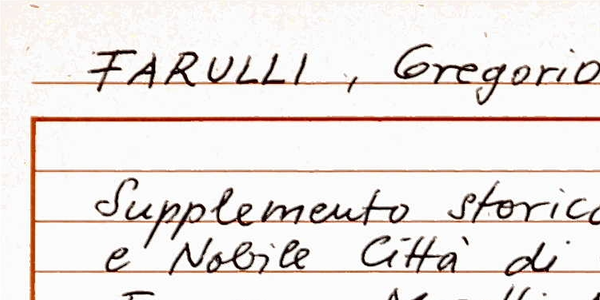 FARULLI, Gregorio
Supplemento storico
e Nobile Città di